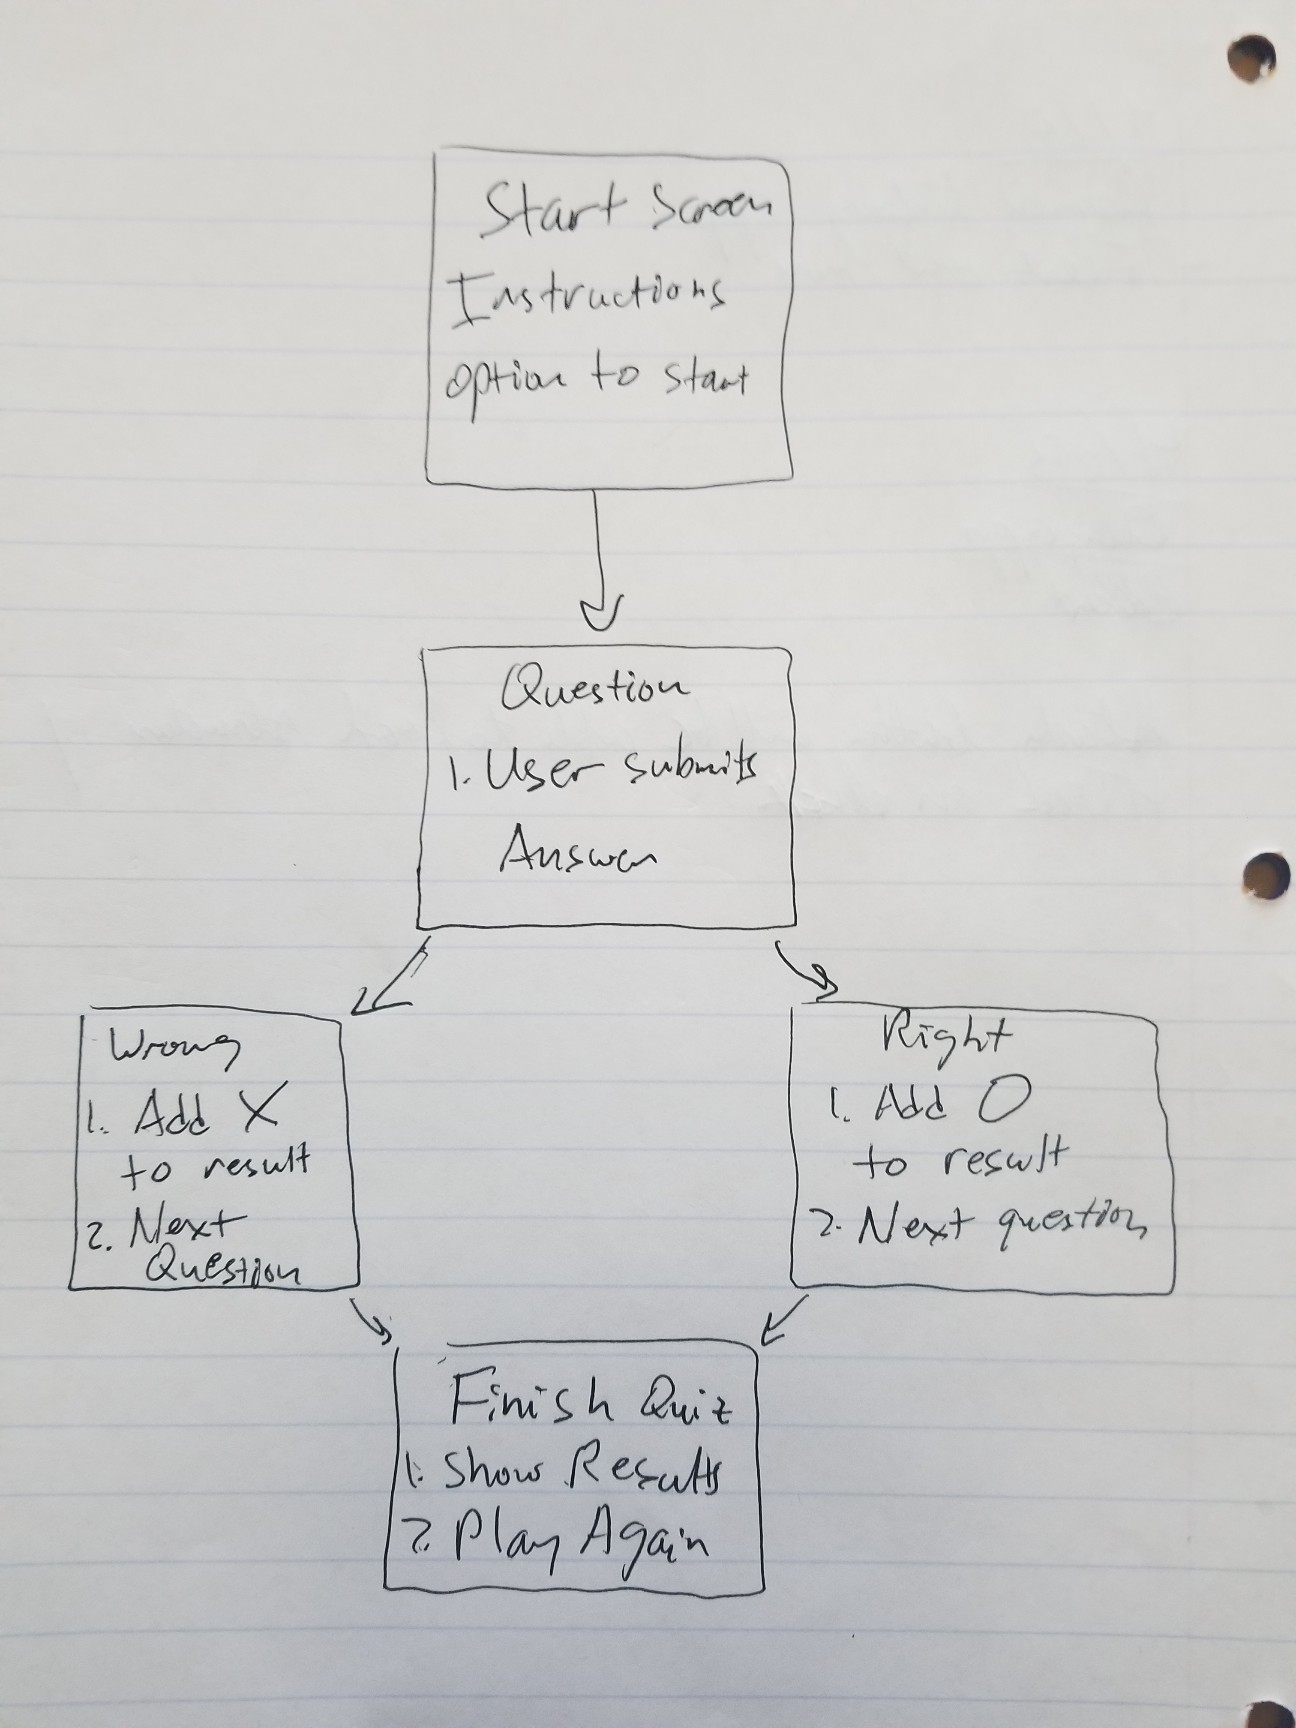 Start Screen
Instructions
option to start
Question
1. User submits
Answer
Wrong
1. Add X
to result
2. Next
Question
Right
1. Add O
to result
2. Next question
Finish Quiz
1. Show Results
2. Play Again